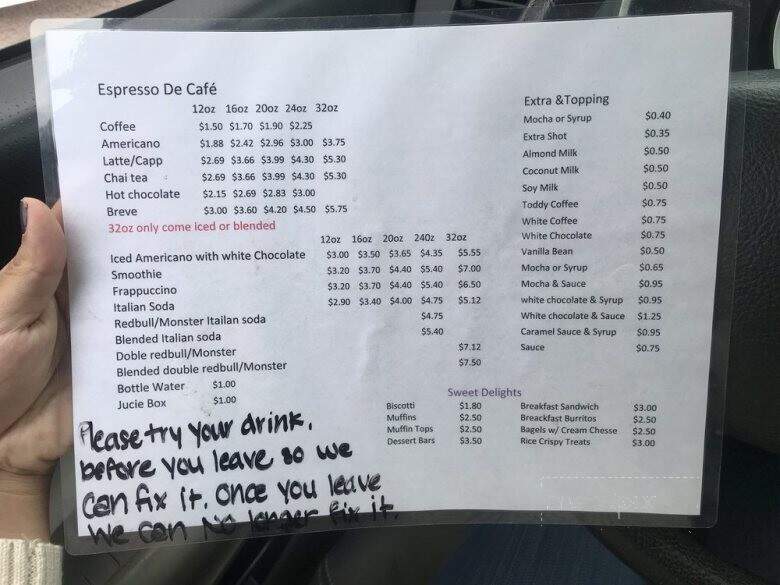 Espresso De Café
12oz 16oz 20oz 24oz 32oz
Coffee $1.50 $1.70 $1.90 $2.25
Americano $1.88 $2.42 $2.96 $3.00 $3.75
Latte/Capp $2.69 $3.66 $3.99 $4.30 $5.30
Chai tea $2.69 $3.66 $3.99 $4.30 $5.30
Hot chocolate $2.15 $2.69 $2.83 $3.00
Breve $3.00 $3.60 $4.20 $4.50 $5.75
32oz only come iced or blended
12oz 16oz 20oz 240z 32oz
Iced Americano with white Chocolate $3.00 $3.50 $3.65 $4.35 $5.55
Smoothie $3.20 $3.70 $4.40 $5.40 $7.00
Frappuccino $3.20 $3.70 $4.40 $5.40 $6.50
Italian Soda $2.90 $3.40 $4.00 $4.75 $5.12
Redbull/Monster Itailan soda $4.75
Blended Italian soda $5.40
Doble redbull/Monster $7.12
Blended double redbull/Monster $7.50
Bottle Water $1.00
Jucie Box $1.00
Extra &Topping
Mocha or Syrup $0.40
Extra Shot $0.35
Almond Milk $0.50
Coconut Milk $0.50
Soy Milk $0.50
Toddy Coffee $0.75
White Coffee $0.75
White Chocolate $0.75
Vanilla Bean $0.50
Mocha or Syrup $0.65
Mocha & Sauce $0.95
white chocolate & Syrup $0.95
White chocolate & Sauce $1.25
Caramel Sauce & Syrup $0.95
Sauce $0.75
Sweet Delights
Biscotti $1.80 Breakfast Sandwich $3.00
Muffins $2.50 Breackfast Burritos $2.50
Muffin Tops $2.50 Bagels w/ Cream Chesse $2.50
Dessert Bars $3.50 Rice Crispy Treats $3.00
Please try your drink,
before you leave so we
can fix it. Once you leave
we can no longer fix it.